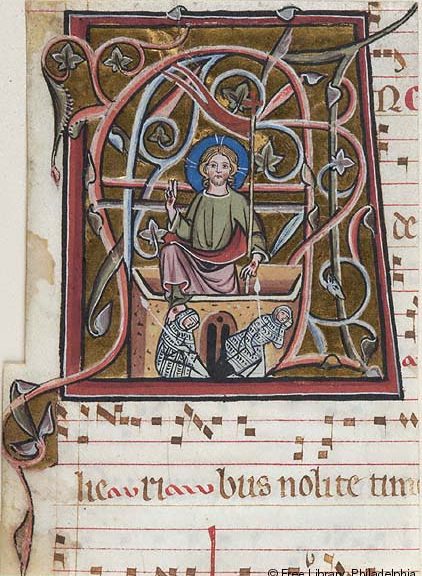 Ne
de
lie au ri au bus nolite tim
© Free Library, Philadelphia